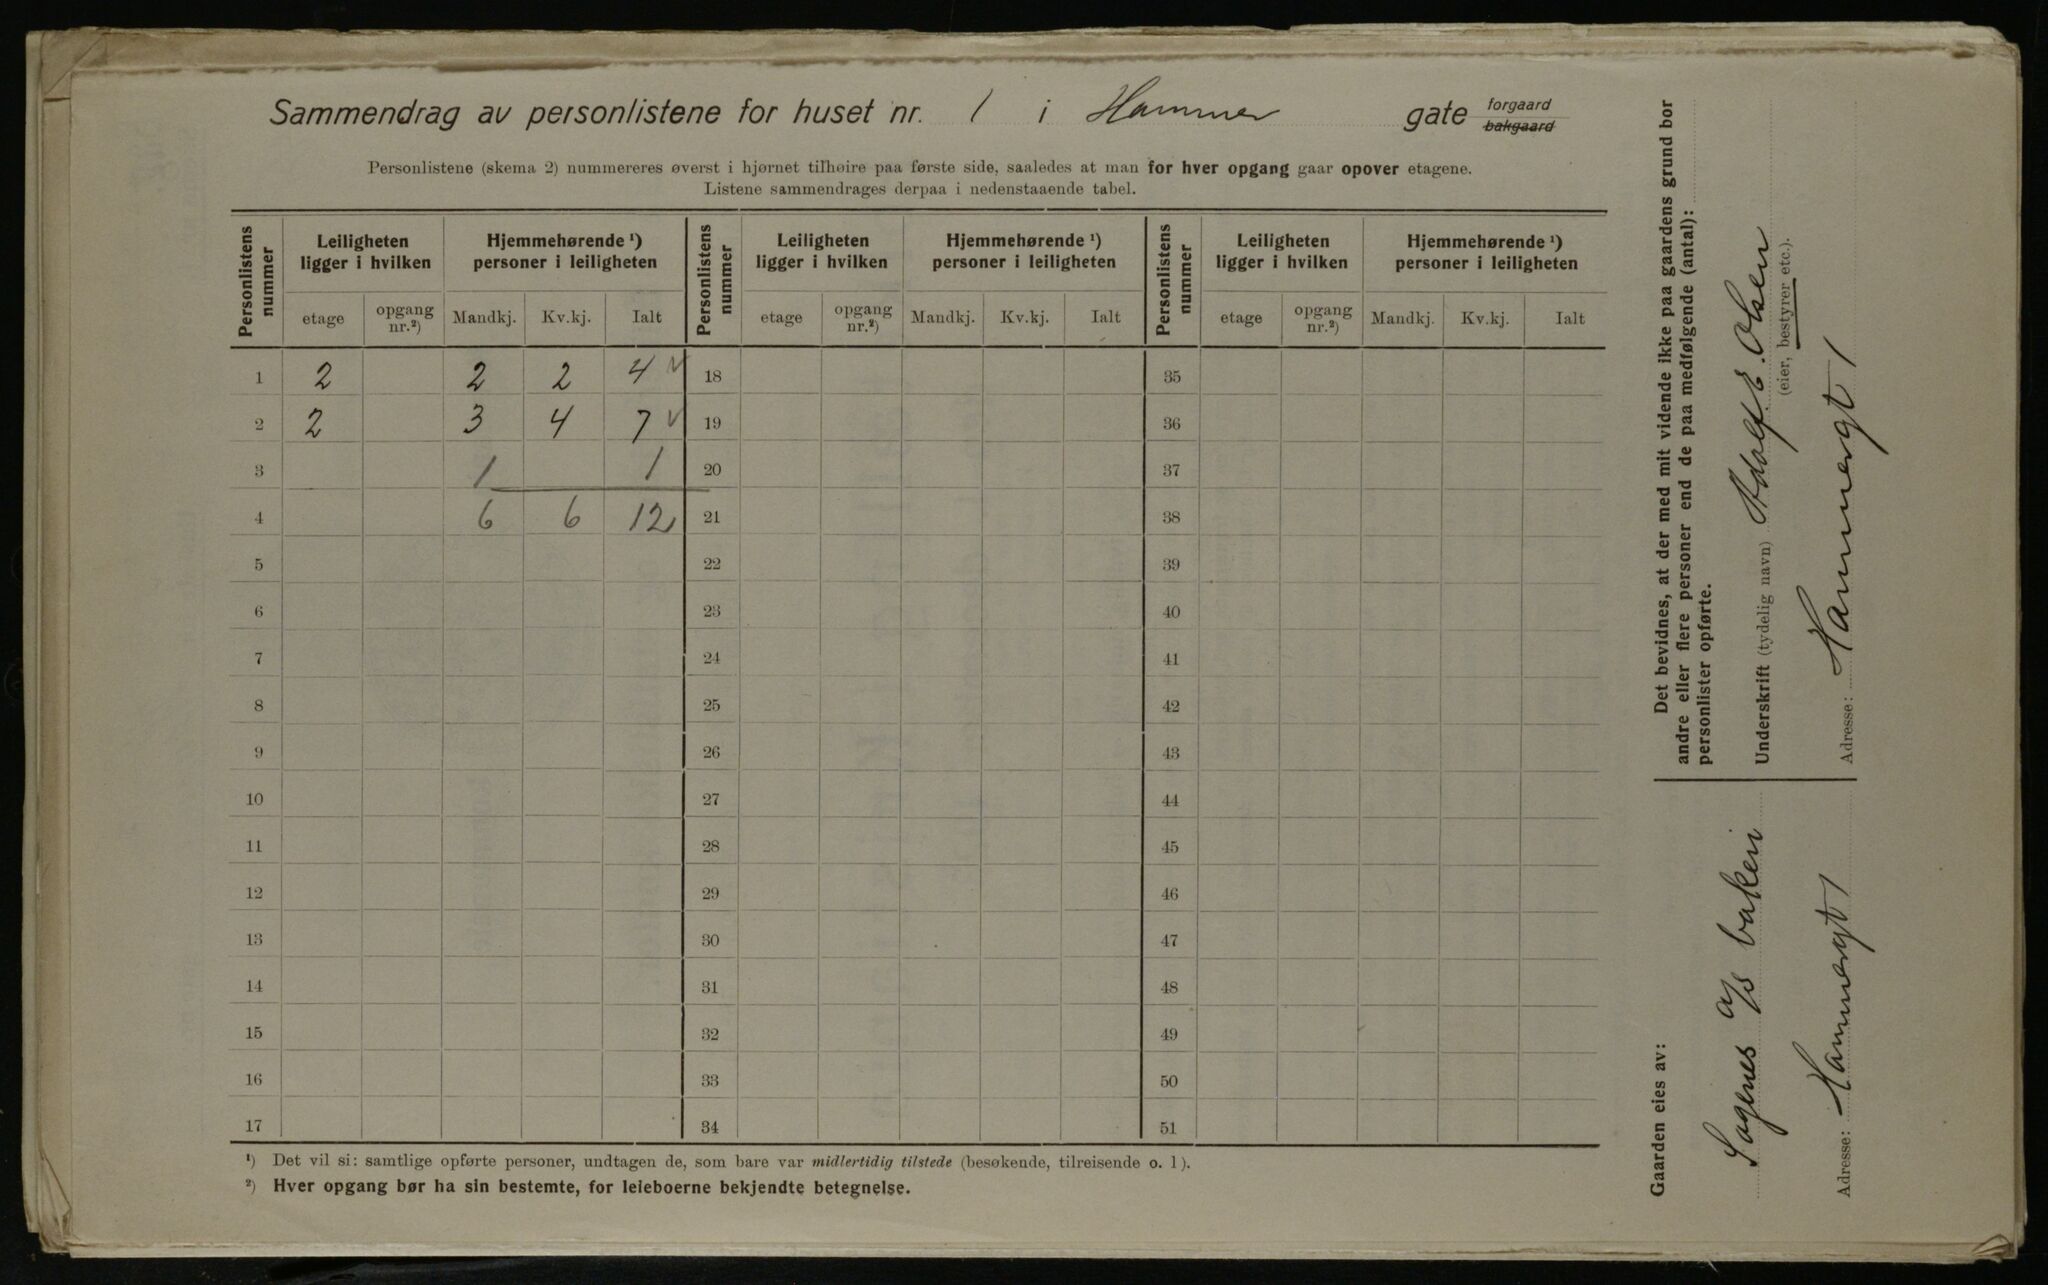 Sammendrag av personlistene for huset nr. 1 i Hammer gate forgaard bakgaard
Personlistene (skema 2) nummereres øverst i hjørnet tilhøire paa første side, saaledes at man for hver opgang gaar opover etagene.
Listene sammendrages derpaa i nedenstaaende tabel.
Personlistens nummer
Leiligheten ligger i hvilken
Hjemmehørende ¹) personer i leiligheten
Personlistens nummer
Leiligheten ligger i hvilken
Hjemmehørende ¹) personer i leiligheten
Personlistens nummer
Leiligheten ligger i hvilken
Hjemmehørende ¹) personer i leiligheten
etage opgang nr.²) Mandkj. Kv.kj. Ialt etage opgang nr.²) Mandkj. Kv.kj. Ialt etage opgang nr.²) Mandkj. Kv.kj. Ialt
1 2 2 2 4 18 35
2 2 3 4 7 19 36
3 1 1 20 37
4 6 6 12 21 38
5 22 39
6 23 40
7 24 41
8 25 42
9 26 43
10 27 44
11 28 45
12 29 46
13 30 47
14 31 48
15 32 49
16 33 50
17 34 51
¹) Det vil si: samtlige opførte personer, undtagen de, som bare var midlertidig tilstede (besøkende, tilreisende o. l).
²) Hver opgang bør ha sin bestemte, for leieboerne bekjendte betegnelse.
Det bevidnes, at der med mit vidende ikke paa gaardens grund bor
andre eller flere personer end de paa medfølgende (antal):
personlister opførte.
Underskrift (tydelig navn) Adolf E. Olsen
(eier, bestyrer etc.).
Adresse: Hammergt 1
Gaarden eies av:
Sagenes a/s bakeri
Adresse: Hammergt 1